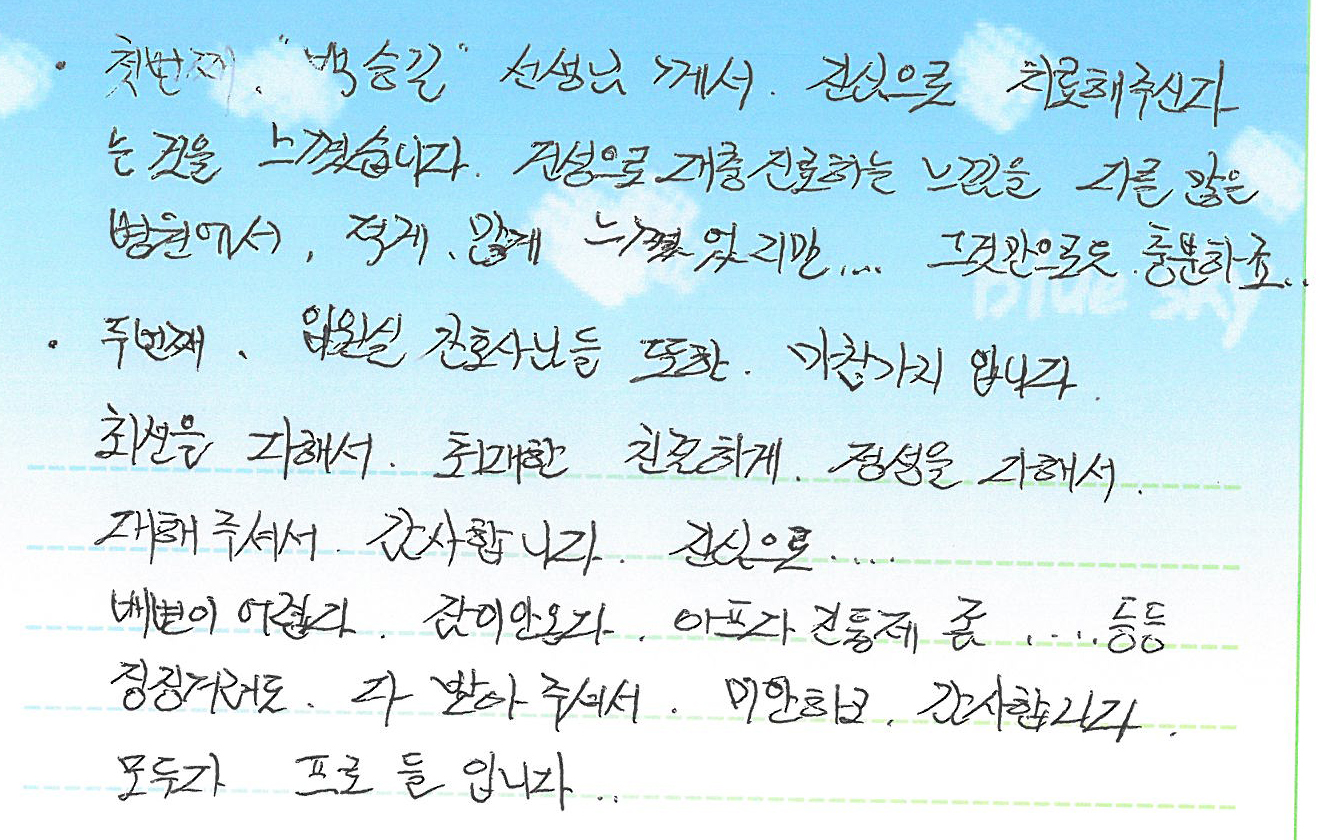 · 첫번째. "박승길" 선생님께서. 진심으로 치료해주신다
는 것을 느꼈습니다. 건성으로 대충진료하는 느낌을 다른 많은
병원에서, 적게. 많게 느꼈었지만... 그것만으로도 충분하죠..
Blue sky
· 두번째. 입원실 간호사님들 또한. 마찬가지 입니다.
최선을 다해서. 최대한 친절하게. 정성을 다해서.
대해 주셔서. 감사합니다. 진심으로.....
배변이 어렵다. 잠이안온다. 아프다 진통제 좀 .....등등
징징거려도. 다 받아 주셔서. 미안하고. 감사합니다.
모두가 프로 들 입니다..